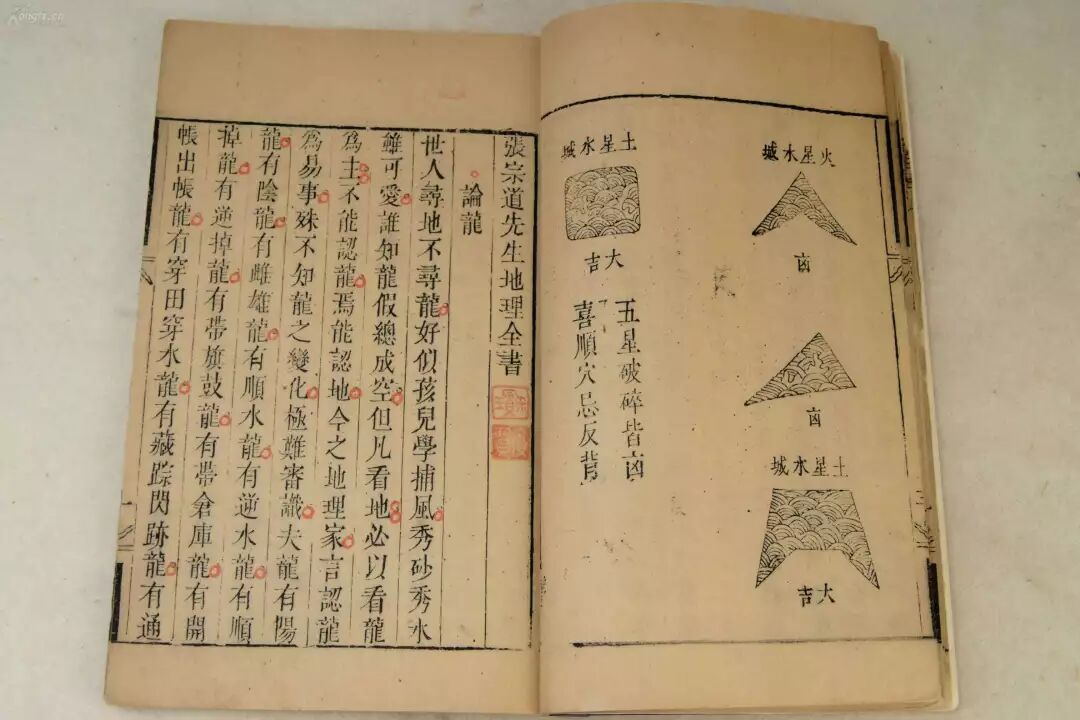 火星水城
㐫
㐫
土星水城
大吉
土星水城
大吉
五星破碎皆㐫
喜順穴忌反背
張宗道先生地理全書
論龍
世人尋地不尋龍好似孩兒學捕風秀砂秀水
雖可愛誰知龍假總成空但凡看地必以看龍
爲主不能認龍焉能認地今之地理家言認龍
爲易事殊不知龍之變化極難審識夫龍有陽
龍有陰龍有雌雄龍有順水龍有逆水龍有順
掉龍有逆掉龍有帶旗鼓龍有帶倉庫龍有開
帳出帳龍有穿田穿水龍有藏踪閃跡龍有通